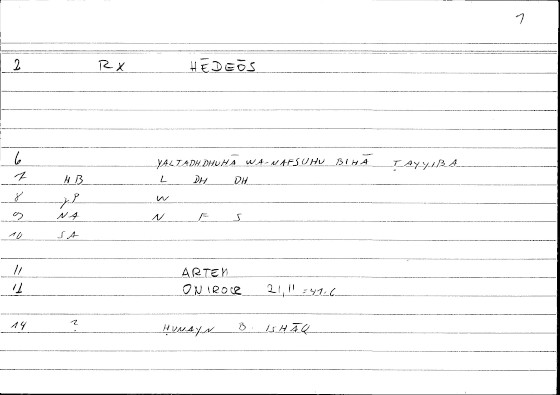 1
2 RX HĒDEŌS
6 YALTADHDHUHĀ WA-NAFSUHU BIHĀ ṬAYYIBA
7 HB L DH DH
8 W
9 NA N F S
10 SA
11 ARTEM
12 ONIROCR 21,11 = 41.6
14 ? ḤUNAYN B ISḤĀQ